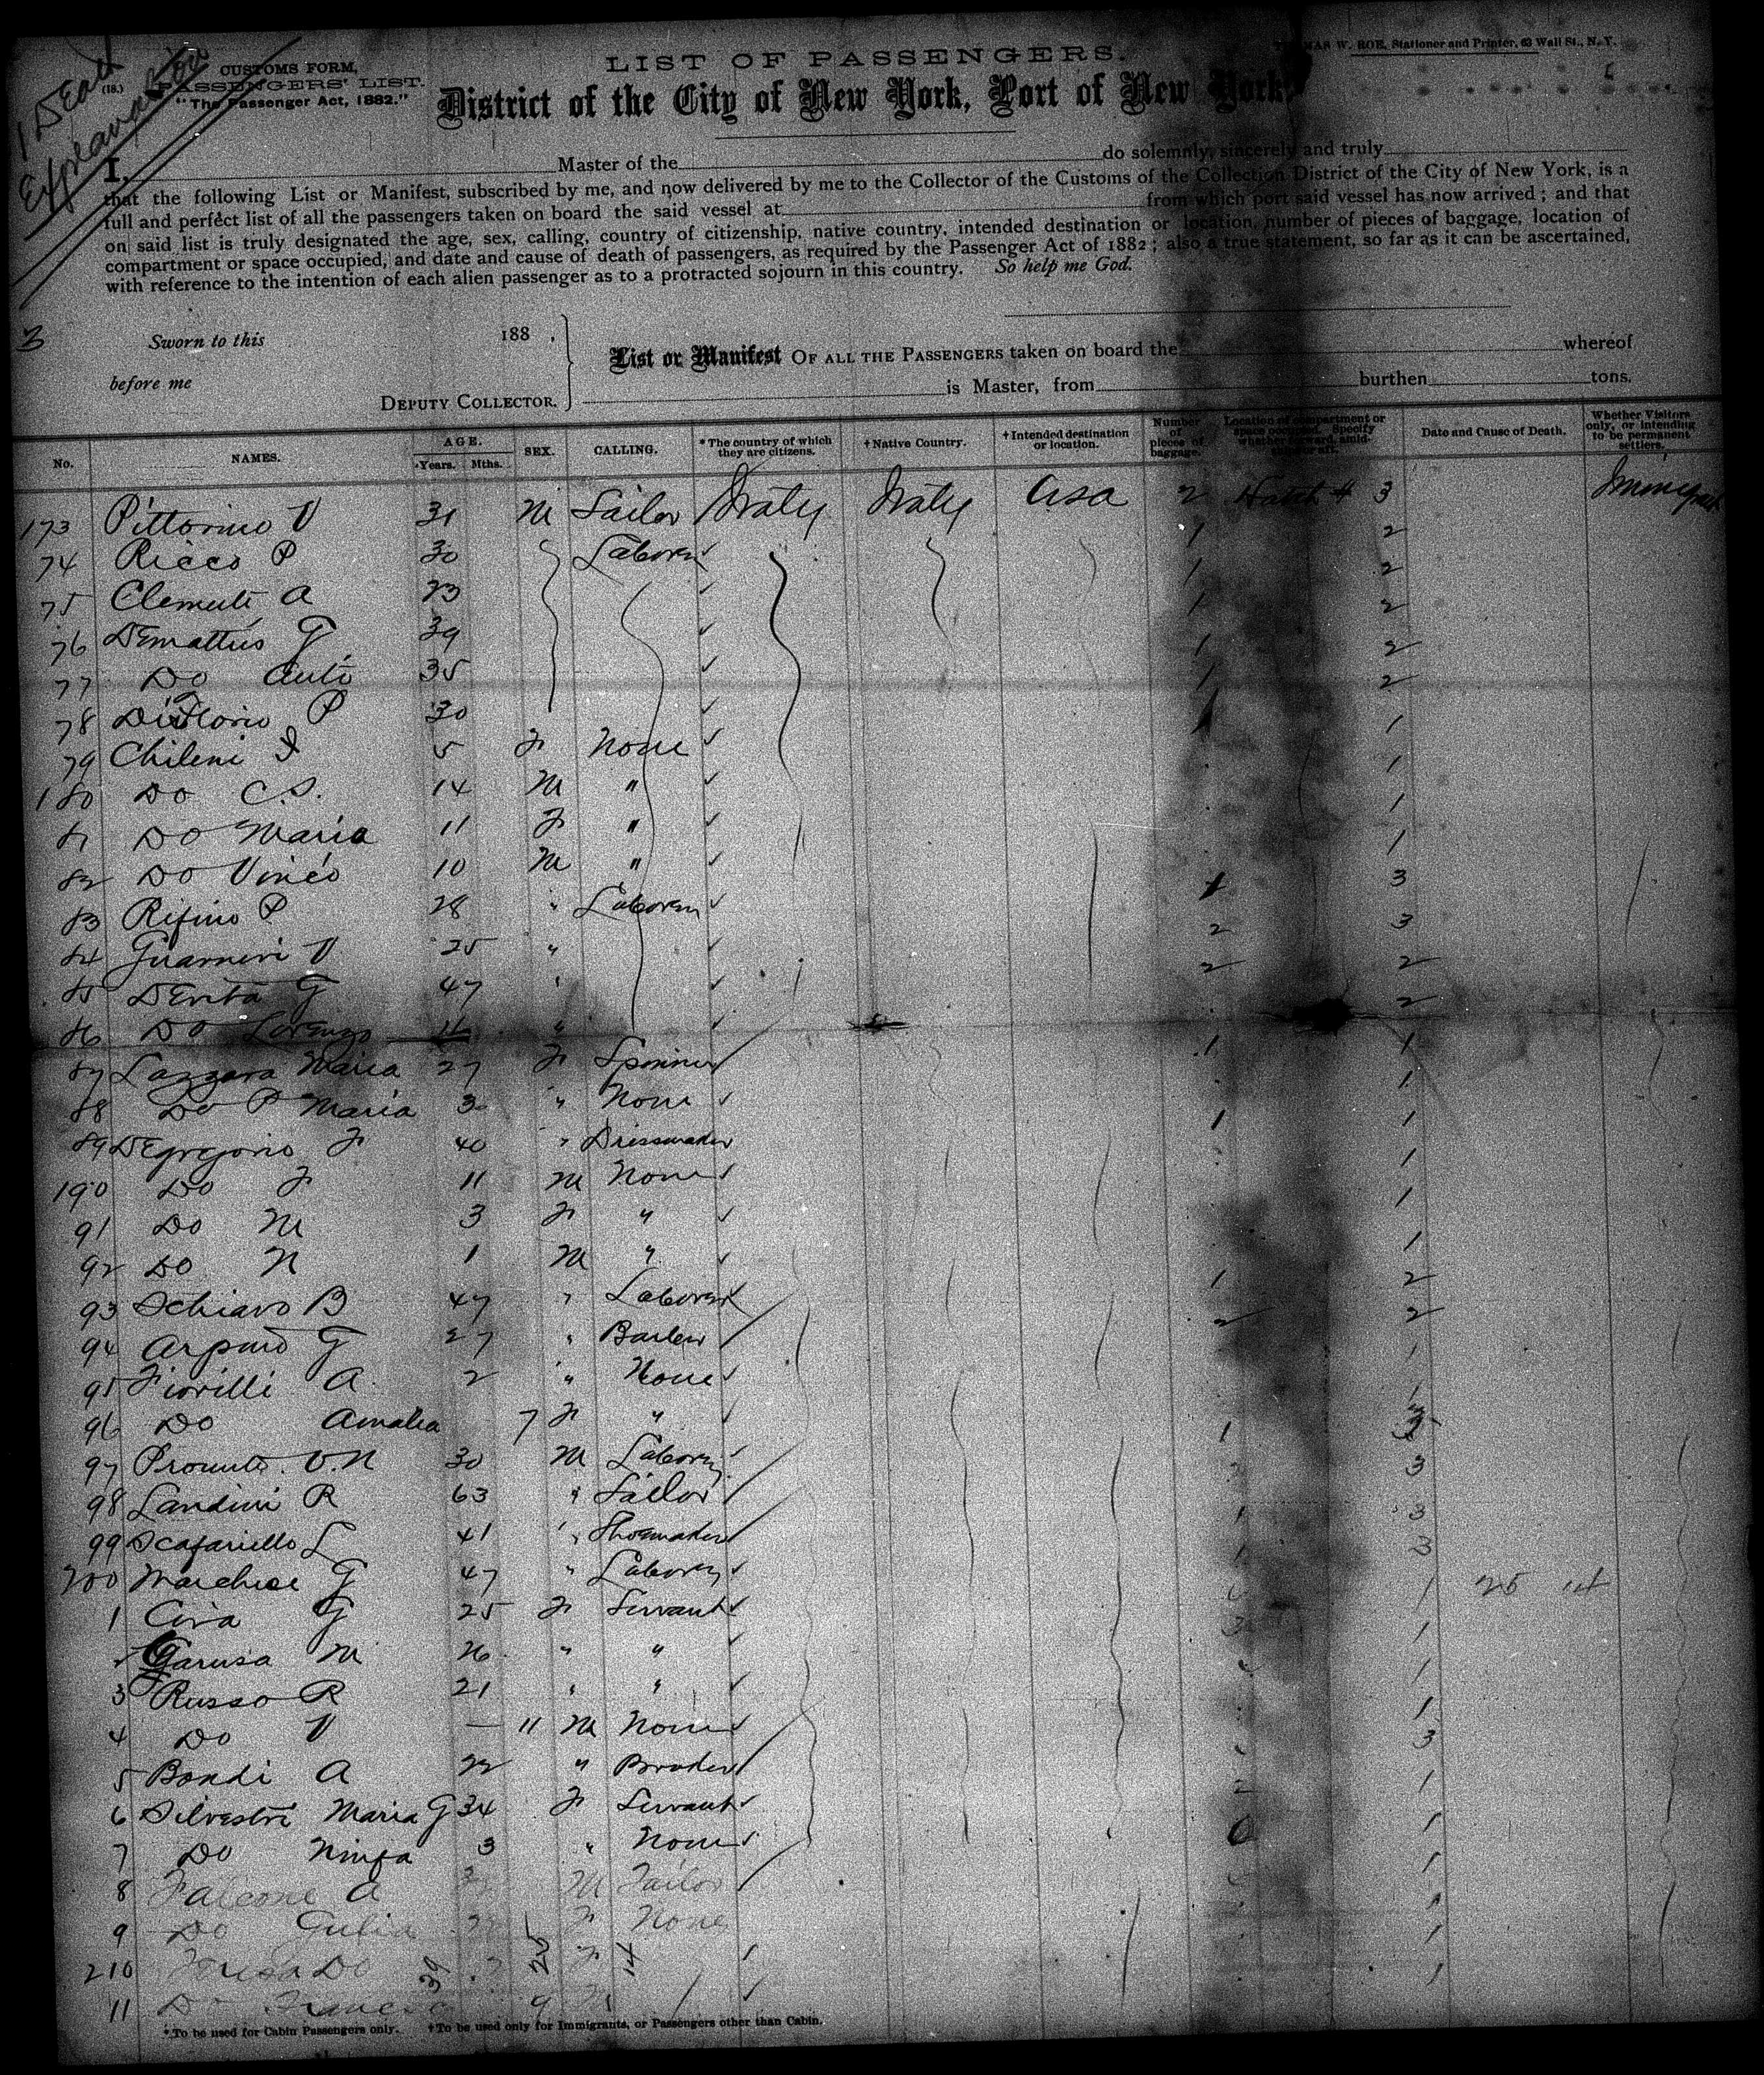 LIST OF PASSENGERS.
MAS W. ROE, Stationer and Printer, 63 Wall St., N.Y.
1 Death
Explanation
(18.)
CUSTOMS FORM,
PASSENGERS' LIST.
"The Passenger Act, 1882."
District of the City of New York, Port of New York.
I, Master of the do solemnly, sincerely and truly
that the following List or Manifest, subscribed by me, and now delivered by me to the Collector of the Customs of the Collection District of the City of New York, is a
full and perfect list of all the passengers taken on board the said vessel at from which port said vessel has now arrived; and that
on said list is truly designated the age, sex, calling, country of citizenship, native country, intended destination or location, number of pieces of baggage, location of
compartment or space occupied, and date and cause of death of passengers, as required by the Passenger Act of 1882; also a true statement, so far as it can be ascertained,
with reference to the intention of each alien passenger as to a protracted sojourn in this country. So help me God.
3
Sworn to this 188 ,
before me
DEPUTY COLLECTOR.
List or Manifest OF ALL THE PASSENGERS taken on board the whereof
is Master, from burthen tons.
No. NAMES. AGE. Years. Mths. SEX. CALLING. * The country of which they are citizens. † Native Country. † Intended destination or location. Number of pieces of baggage. Location of compartment or space occupied. Specify whether forward, amidships or aft. Date and Cause of Death. Whether Visitors only, or intending to be permanent settlers.
173 Pittorino V 31 M Sailor Italy Italy USA 2 Hatch # 3
74 Ricco P 30 Laborer 1 2
75 Clemente A 23 1 2
76 DEmattus G 39 1 2
77 Do 35 1 2
78 P 30 1 2
79 Chileni 5 F None 1
180 Do C.S. 14 M " 1
81 Do Maria 11 F " 1
82 Do Vinco 10 M " 1
83 Rifino P 28 " Laborer 1 3
84 Guarneri V 25 " 2 3
85 DErita G 47 " 2 2
86 Do Lorenzo " 2
87 Lazzara Maria 27 F Spinner 1 1
88 Do P Maria 3 " None 1
89 DEgregorio F 40 " Dressmaker 1 1
190 Do F 11 M None 1
91 Do M 3 F " 1
92 Do N 1 M " 1
93 Schiavo B 47 " Laborer 1 2
94 Arpino G 27 " Barber 2 2
95 Fiorilli A 2 " None 1
96 Do Amalia 7 F " 1
97 V.N 30 M Laborer 1
98 Landini R 63 " Sailor 3
99 Scafariello L 41 " Shoemaker 1 3
200 Marchese G 47 " Laborer 1 3
1 Cira G 25 F Servant 1 25 14
2 Garusa M 26 " " 1
3 Russo R 21 " " 1
4 Do V — 11 M None 1
5 Bondi A 22 " 3
6 Silvestri Maria G 34 F Servant 1
7 Do Ninfa 3 " None 1
8 Falcone A M Tailor 1
9 Do Gulia F None
210 Teresa Do F 1
11 Do 9 M 1
39 25 14
* To be used for Cabin Passengers only. † To be used only for Immigrants, or Passengers other than Cabin.